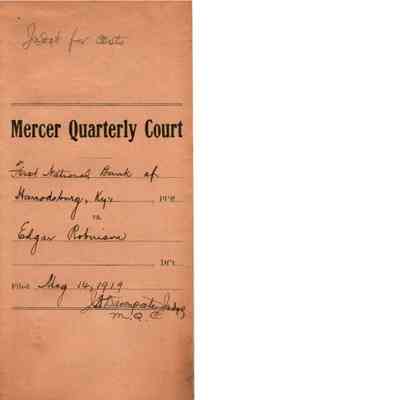 Judgt for costs
Mercer Quarterly Court
First National Bank of
Harrodsburg, Ky., PFF.
vs.
Edgar Robinson
DFT.
Filed May 14, 1919
Judge
M.Q.C